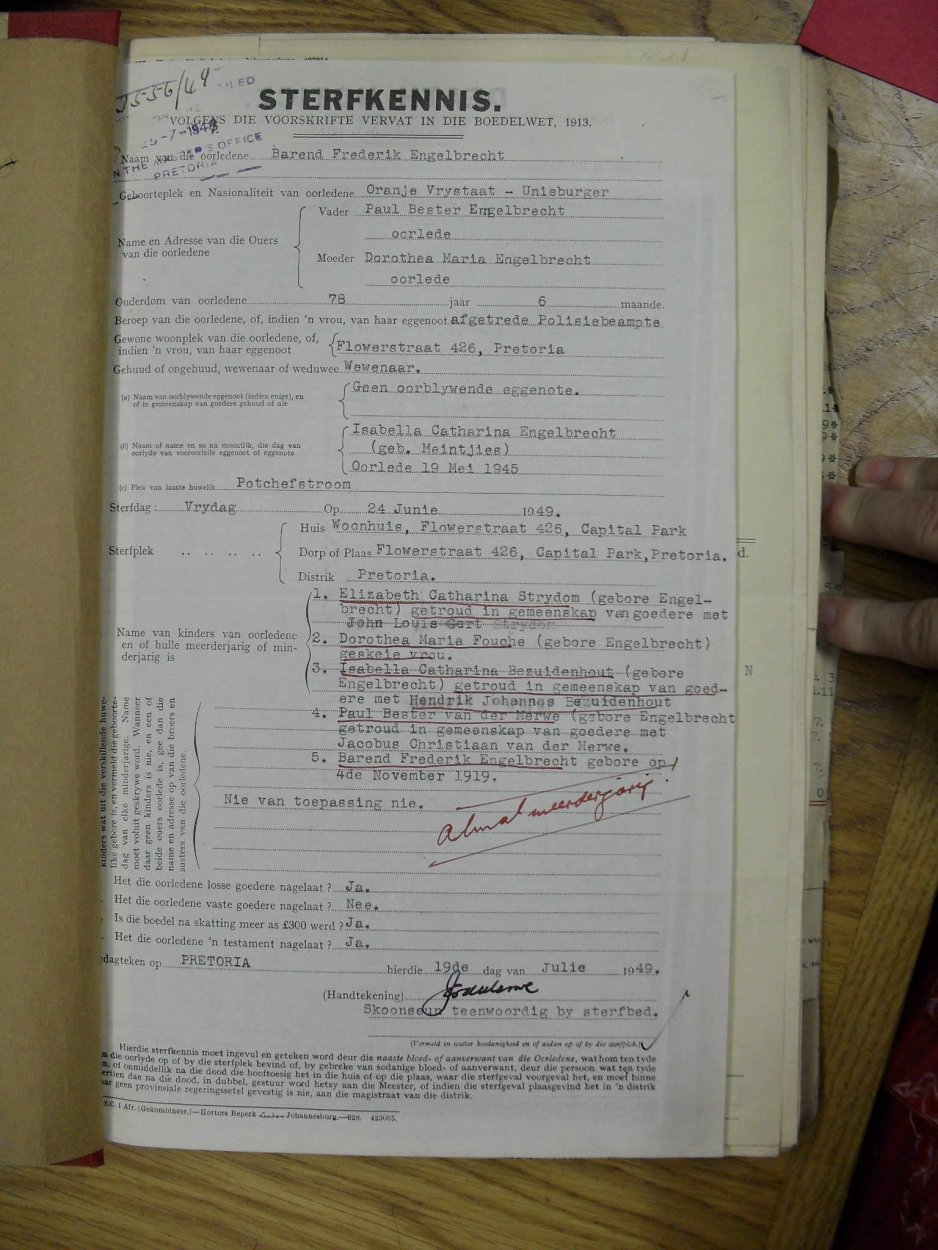 5556/49
FILED
25-7-1949
IN THE MASTER'S OFFICE
PRETORIA
STERFKENNIS.
VOLGENS DIE VOORSKRIFTE VERVAT IN DIE BOEDELWET, 1913.
Naam van die oorledene Barend Frederik Engelbrecht
Geboorteplek en Nasionaliteit van oorledene Oranje Vrystaat - Unieburger
Vader Paul Bester Engelbrecht
oorlede
Name en Adresse van die Ouers
van die oorledene
Moeder Dorothea Maria Engelbrecht
oorlede
Ouderdom van oorledene 78 jaar 6 maande.
Beroep van die oorledene, of, indien 'n vrou, van haar eggenoot afgetrede Polisiebeampte
Gewone woonplek van die oorledene, of,
indien 'n vrou, van haar eggenoot Flowerstraat 426, Pretoria
Gehuud of ongehuud, wewenaar of weduwee Wewenaar.
(a) Naam van oorblywende eggenoot (indien enige), en
of in gemeenskap van goedere gehuud of nie
Geen oorblywende eggenote.
(b) Naam of name en so na moontlik, die dag van
oorlyde van vooroorlede eggenoot of eggenote
Isabella Catharina Engelbrecht
(geb. Meintjies)
Oorlede 19 Mei 1945
(c) Plek van laaste huwelik Potchefstroom
Sterfdag: Vrydag Op 24 Junie 1949.
Huis Woonhuis, Flowerstraat 426, Capital Park
Sterfplek .. .. .. .. Dorp of Plaas Flowerstraat 426, Capital Park, Pretoria.
Distrik Pretoria.
Name van kinders van oorledene
en of hulle meerderjarig of min-
derjarig is
1. Elizabeth Catharina Strydom (gebore Engel-
brecht) getroud in gemeenskap van goedere met
John Louis Gert Strydom
2. Dorothea Maria Fouche (gebore Engelbrecht)
geskeie vrou.
3. Isabella Catharina Bezuidenhout (gebore
Engelbrecht) getroud in gemeenskap van goed-
ere met Hendrik Johannes Bezuidenhout
4. Paul Bester van der Merwe (gebore Engelbrecht
getroud in gemeenskap van goedere met
Jacobus Christiaan van der Merwe.
5. Barend Frederik Engelbrecht gebore op
4de November 1919.
kinders wat uit die verskillende huwe-
like gebore is, en vermeld die geboorte-
dag van elke minderjarige. Name
moet voluit geskrywe word. Wanneer
daar geen kinders is nie, en een of
beide ouers oorlede is, gee dan die
name en adresse op van die broers en
susters van die oorledene.
Nie van toepassing nie.
Almal meerderjarig
Het die oorledene losse goedere nagelaat? Ja.
Het die oorledene vaste goedere nagelaat? Nee.
Is die boedel na skatting meer as £300 werd? Ja.
Het die oorledene 'n testament nagelaat? Ja.
dagteken op PRETORIA hierdie 19de dag van Julie 1949.
(Handtekening)
Skoonseun teenwoordig by sterfbed.
(Vermeld in watter hoedanigheid en of asdan op of by die sterfplek.)
Hierdie sterfkennis moet ingevul en geteken word deur die naaste bloed- of aanverwant van die Oorledene, wat hom ten tyde
die oorlyde op of by die sterfplek bevind of, by gebreke van sodanige bloed- of aanverwant, deur die persoon wat ten tyde
of onmiddellik na die dood die hooftoesig het in die huis of op die plaas, waar die sterfgeval voorgeval het, en moet binne
veertien dae na die dood, in dubbel, gestuur word hetsy aan die Meester, of indien die sterfgeval plaasgevind het in 'n distrik
waar geen provinsiale regeringssetel gevestig is nie, aan die magistraat van die distrik.
S.C. 1 Afr. [Gekombineer.]—Hortors Beperk Johannesburg.—628. 423005.